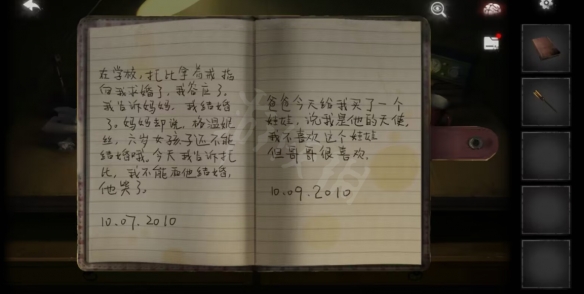 在学校,托比拿着戒指
向我求婚了,我答应了。
我告诉妈妈,我结婚
了。妈妈却说,格温妮
丝,六岁女孩子还不能
结婚哦。今天我告诉托
比,我不能和他结婚,
他哭了。
10.07.2010
爸爸今天给我买了一个
娃娃,说我是他的天使,
我不喜欢这个娃娃
但哥哥很喜欢.
10.09.2010